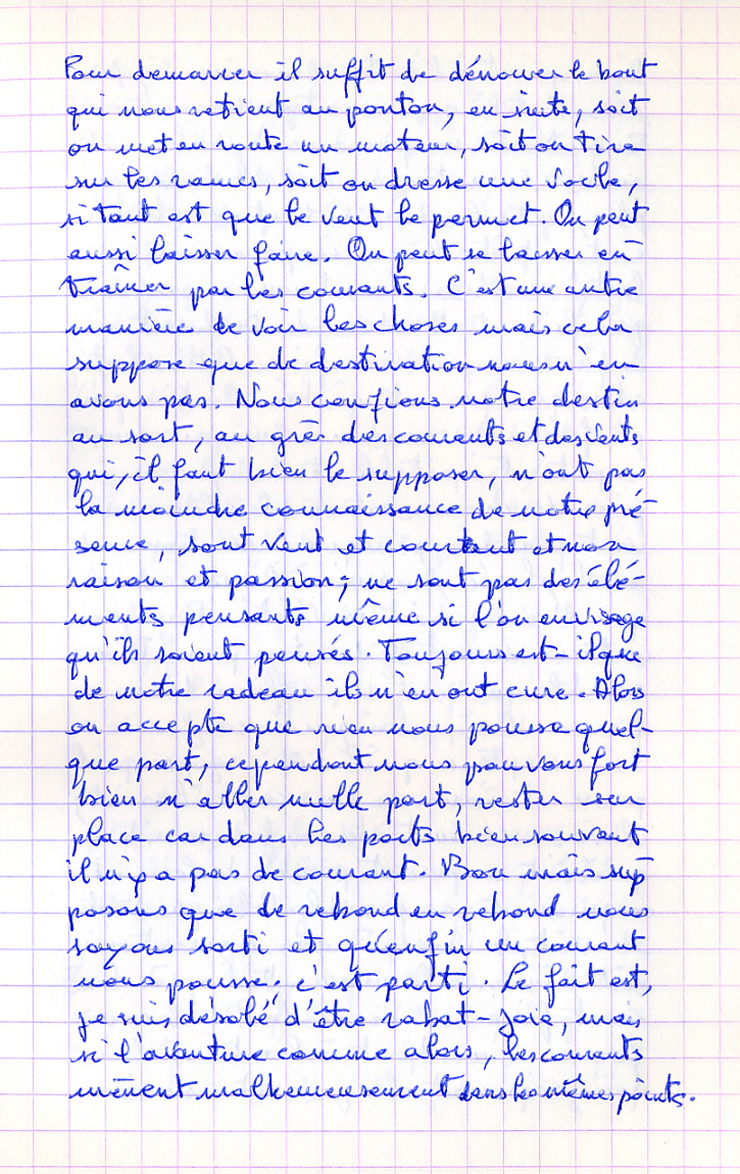 Pour demarrer il suffit de dénouer le bout
qui nous retient au ponton, en suite, soit
on met en route un moteur, soit on tire
sur les rames, soit on dresse une voile,
si tant est que le vent le permet. On peut
aussi laisser faire. On peut se laisser en
traîner par les courants. C'est une autre
manière de voir les choses mais cela
suppose que de destination nous n'en
avons pas. Nous confions notre destin
au sort, au gré des courants et des vents
qui, il faut bien le supposer, n'ont pas
la moindre connaissance de notre pré-
sence, sont vent et courant et non
raison et passion ; ne sont pas des élé-
ments pensants même si l'on envisage
qu'ils soient pensés. Toujours est-il que
de notre radeau ils n'en ont cure. Alors
on accepte que rien nous pousse quel-
que part, cependant nous pouvons fort
bien n'aller nulle part, rester sur
place car dans les ports bien souvent
il n'y a pas de courant. Bon mais sup
posons que de rebond en rebond nous
soyons sorti et qu'enfin un courant
nous pousse ; c'est parti. Le fait est,
je suis désolé d'être rabat-joie, mais
si l'aventure comme alors, les courants
mènent malheureusement dans les mêmes points.